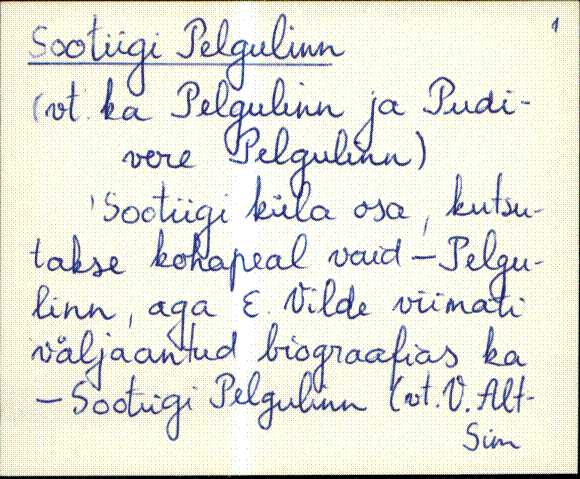 1
Sootiigi Pelgulinn
(vt. ka Pelgulinn ja Pudi-
vere Pelgulinn)
'Sootiigi küla osa, kutsu-
takse kohapeal vaid - Pelgu-
linn, aga E. Vilde viimati
väljaantud biograafias ka
- Sootiigi Pelgulinn (vt. V. Alt-
Sim